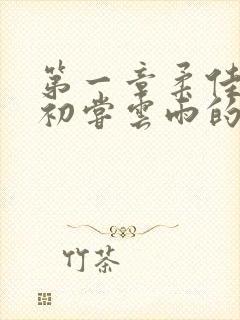 第一章柔佳
初尝云雨的
竹茶